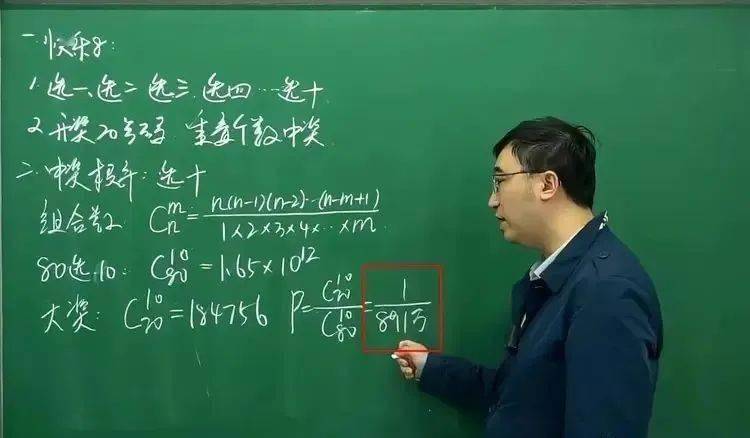 一.快乐8:
1.选一、选二 选三.选四…选十
2.开奖20个号码 重叠个数中奖
二.中奖概率:选十
组合数 C_n^m = n(n-1)(n-2)…(n-m+1) / 1×2×3×4×…×m
80选10: C_80^10 = 1.65×10^12
大奖: C_20^10 = 184756 P = C_20^10 / C_80^10 = 1 / 891万